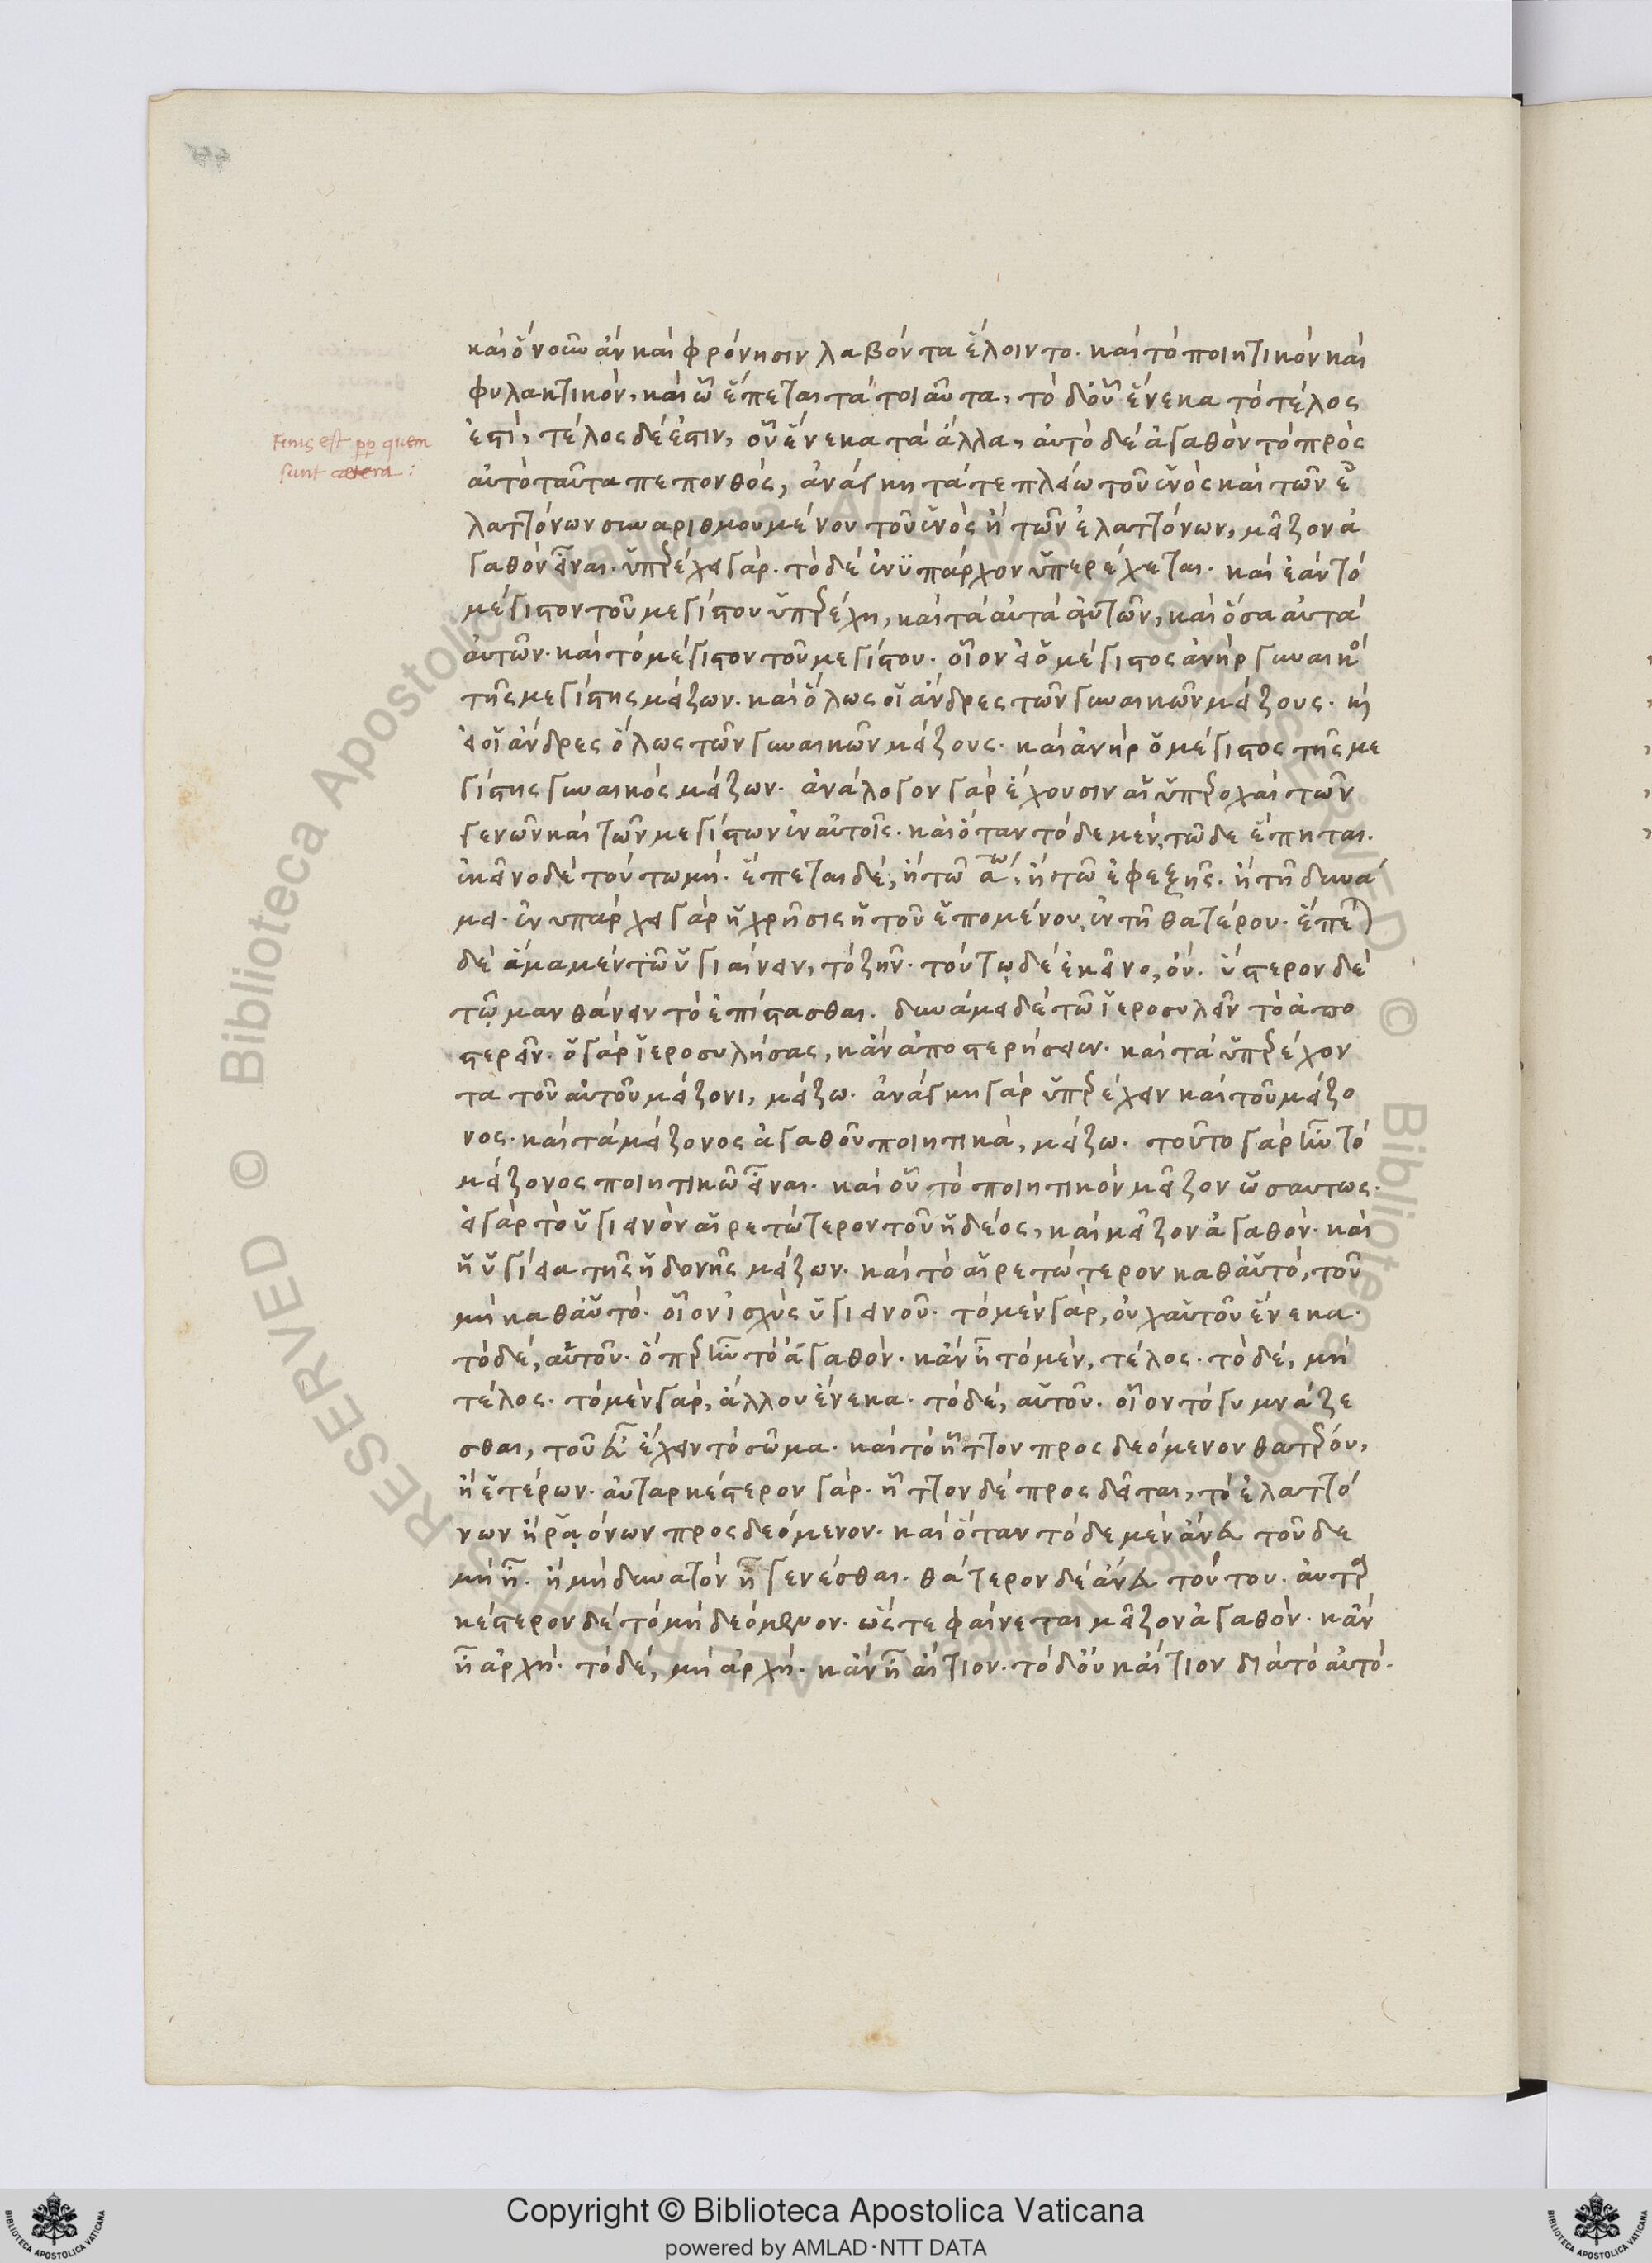 καὶ ὃ νοῦν ἂν καὶ φρόνησιν λαβόντα ἕλοιντο. καὶ τὸ ποιητικὸν καὶ
φυλακτικὸν, καὶ ὧ ἕπεται τὰ τοιαῦτα, τὸ δ' οὗ ἕνεκα τὸ τέλος
Finis est pp quem
sunt cetera:
ἐστὶ, τέλος δέ ἐστιν, οὗ ἕνεκα τὰ ἄλλα, αὐτὸ δὲ ἀγαθὸν τὸ πρὸς
αὐτὸ ταῦτα πεπονθὸς, ἀνάγκη τά τε πλείω τοῦ ἑνὸς καὶ τῶν ἐ
λαττόνων συναριθμουμένου τοῦ ἑνὸς ἢ τῶν ἐλαττόνων, μεῖζον ἀ
γαθὸν εἶναι. ὑπερέχει γάρ. τὸ δὲ ἐνϋπάρχον ὑπερέχεται. καὶ ἐὰν τὸ
μέγιστον τοῦ μεγίστου ὑπερέχη, καὶ τὰ αὐτὰ αὐτῶν, καὶ ὅσα αὐτὰ
αὐτῶν. καὶ τὸ μέγιστον τοῦ μεγίστου. οἷον εἰ ὁ μέγιστος ἀνὴρ γυναικὸ
τῆς μεγίστης μείζων. καὶ ὅλως οἱ ἄνδρες τῶν γυναικῶν μείζους. κὶ
εἰ οἱ ἄνδρες ὅλως τῶν γυναικῶν μείζους. καὶ ἀνὴρ ὁ μέγιστος τῆς με
γίστης γυναικὸς μείζων. ἀνάλογον γὰρ ἔχουσιν αἱ ὑπεροχαὶ τῶν
γενῶν καὶ τῶν μεγίστων ἐν αὐτοῖς. καὶ ὅταν τόδε μὲν τῶδε ἕπηται.
ἐκεῖνο δὲ τούτω μή. ἕπεται δὲ, ἢ τῶ ἅ, ἢ τῶ ἐφεξῆς. ἢ τῆ δυνά
μει. ἐνυπάρχει γὰρ ἡ χρῆσις ἡ τοῦ ἑπομένου, ἐν τῆ θατέρου. ἕπεται
δὲ ἅμα μὲν τῶ ὑγιαίνειν, τὸ ζῆν. τούτω δὲ ἐκεῖνο, οὔ. ὕστερον δὲ
τῶ μανθάνειν τὸ ἐπίστασθαι. δυνάμει δὲ τῶ ἱεροσυλεῖν τὸ ἀπο
στερεῖν. ὁ γὰρ ἱεροσυλήσας, κἂν ἀποστερήσειεν. καὶ τὰ ὑπερέχον
τα τοῦ αὐτοῦ μείζονι, μείζω. ἀνάγκη γὰρ ὑπερέχειν καὶ τοῦ μείζο
νος. καὶ τὰ μείζονος ἀγαθοῦ ποιητικὰ, μείζω. τοῦτο γὰρ ἦν τὸ
μείζονος ποιητικῶ εἶναι. καὶ οὗ τὸ ποιητικὸν μεῖζον ὡσαύτως.
εἰ γὰρ τὸ ὑγιεινὸν αἱρετώτερον τοῦ ἡδέος, καὶ μεῖζον ἀγαθόν. καὶ
ἡ ὑγίεια τῆς ἡδονῆς μείζων. καὶ τὸ αἱρετώτερον καθ' αὑτὸ, τοῦ
μὴ καθ' αὑτό. οἷον ἰσχὺς ὑγιεινοῦ. τὸ μὲν γὰρ, οὐχ αὑτοῦ ἕνεκα.
τὸ δὲ, αὑτοῦ. ὅπερ ἦν τὸ ἀγαθόν. κἂν ἦ τὸ μὲν, τέλος. τὸ δὲ, μὴ
τέλος. τὸ μὲν γὰρ, ἄλλου ἕνεκα. τὸ δὲ, αὑτοῦ. οἷον τὸ γυμνάζε
σθαι, τοῦ εὖ ἔχειν τὸ σῶμα. καὶ τὸ ἧττον προσδεόμενον θατέρου,
ἢ ἑτέρων. αὐταρκέστερον γάρ. ἧττον δὲ προσδεῖται, τὸ ἐλαττό
νων ἢ ῥαόνων προσδεόμενον. καὶ ὅταν τόδε μὲν ἄνευ τοῦδε
μὴ ἦ. ἢ μὴ δυνατὸν ἦ γενέσθαι. θάτερον δὲ ἄνευ τούτου. αὐταρ
κέστερον δὲ τὸ μὴ δεόμενον. ὥστε φαίνεται μεῖζον ἀγαθόν. κἂν
ἦ ἀρχή. τὸ δὲ, μὴ ἀρχή. κἂν ἦ αἴτιον. τὸ δ' οὐκ αἴτιον διὰ τὸ αὐτό.
Copyright © Biblioteca Apostolica Vaticana
powered by AMLAD·NTT DATA